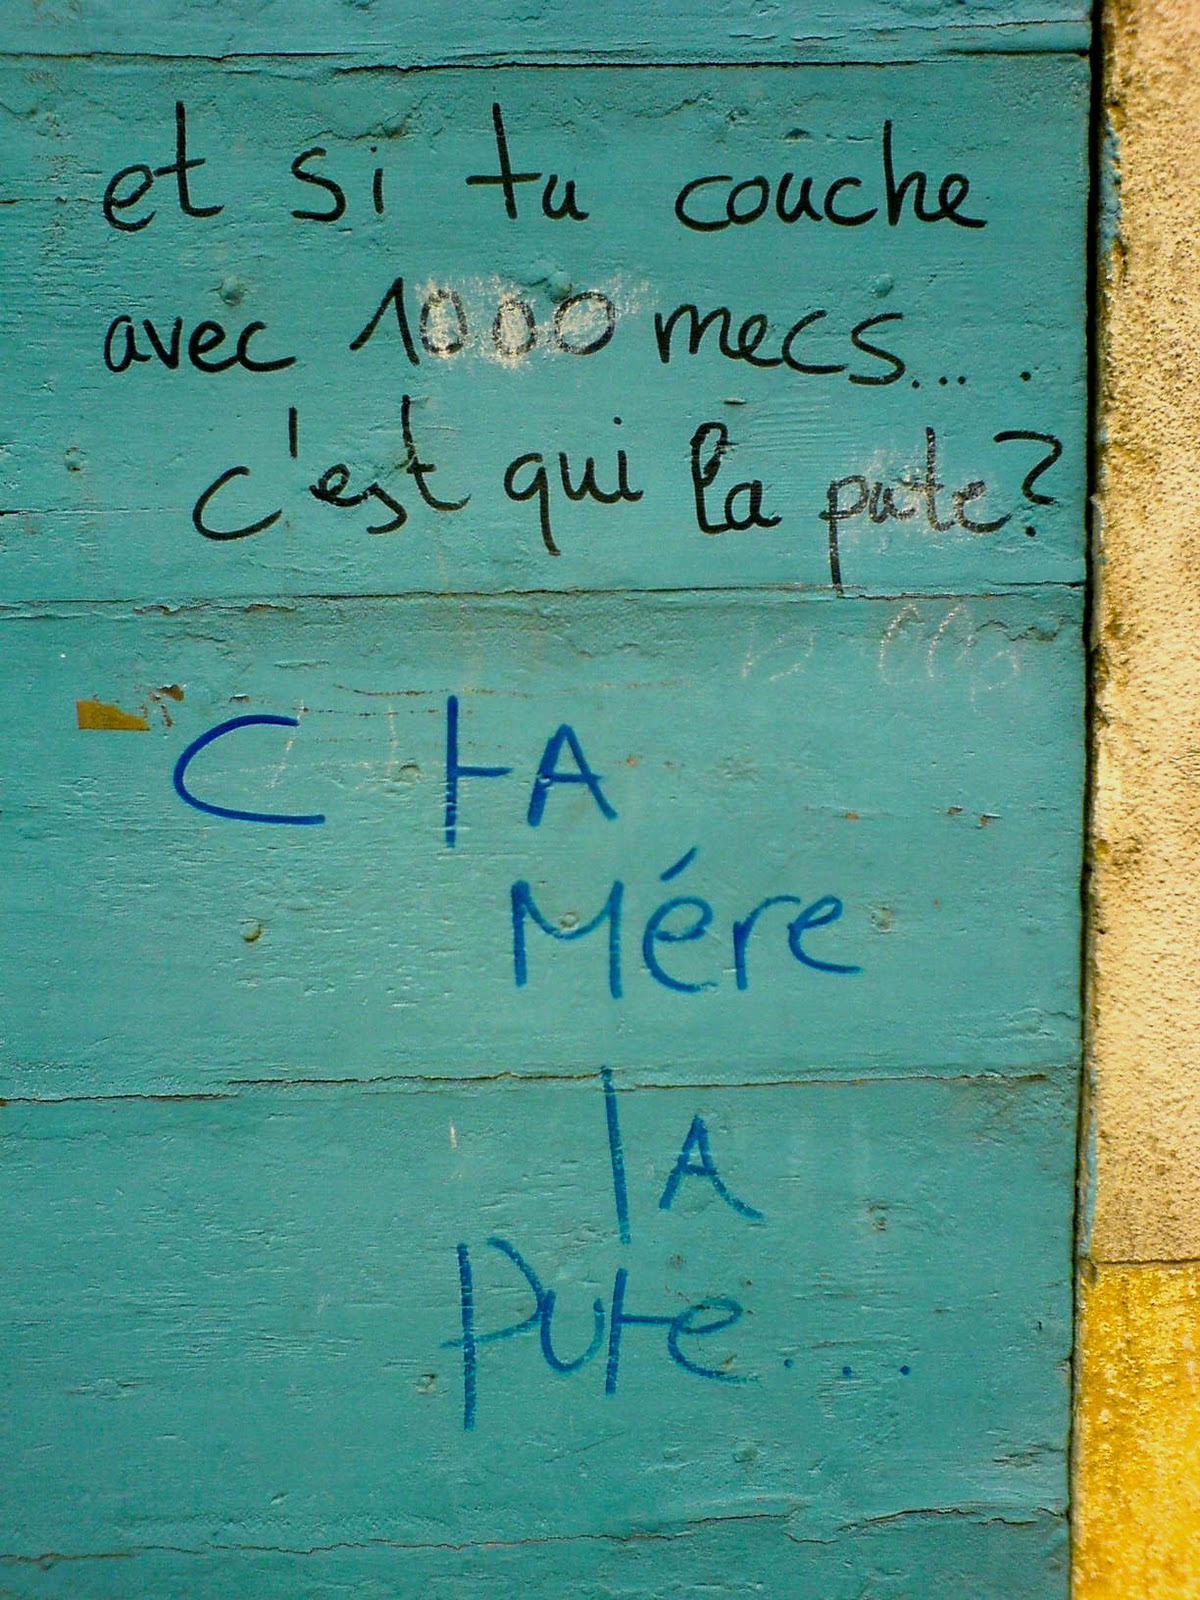 et si tu couche
avec 1000 mecs....
c'est qui la pute?
C tA
Mére
lA
Pute...